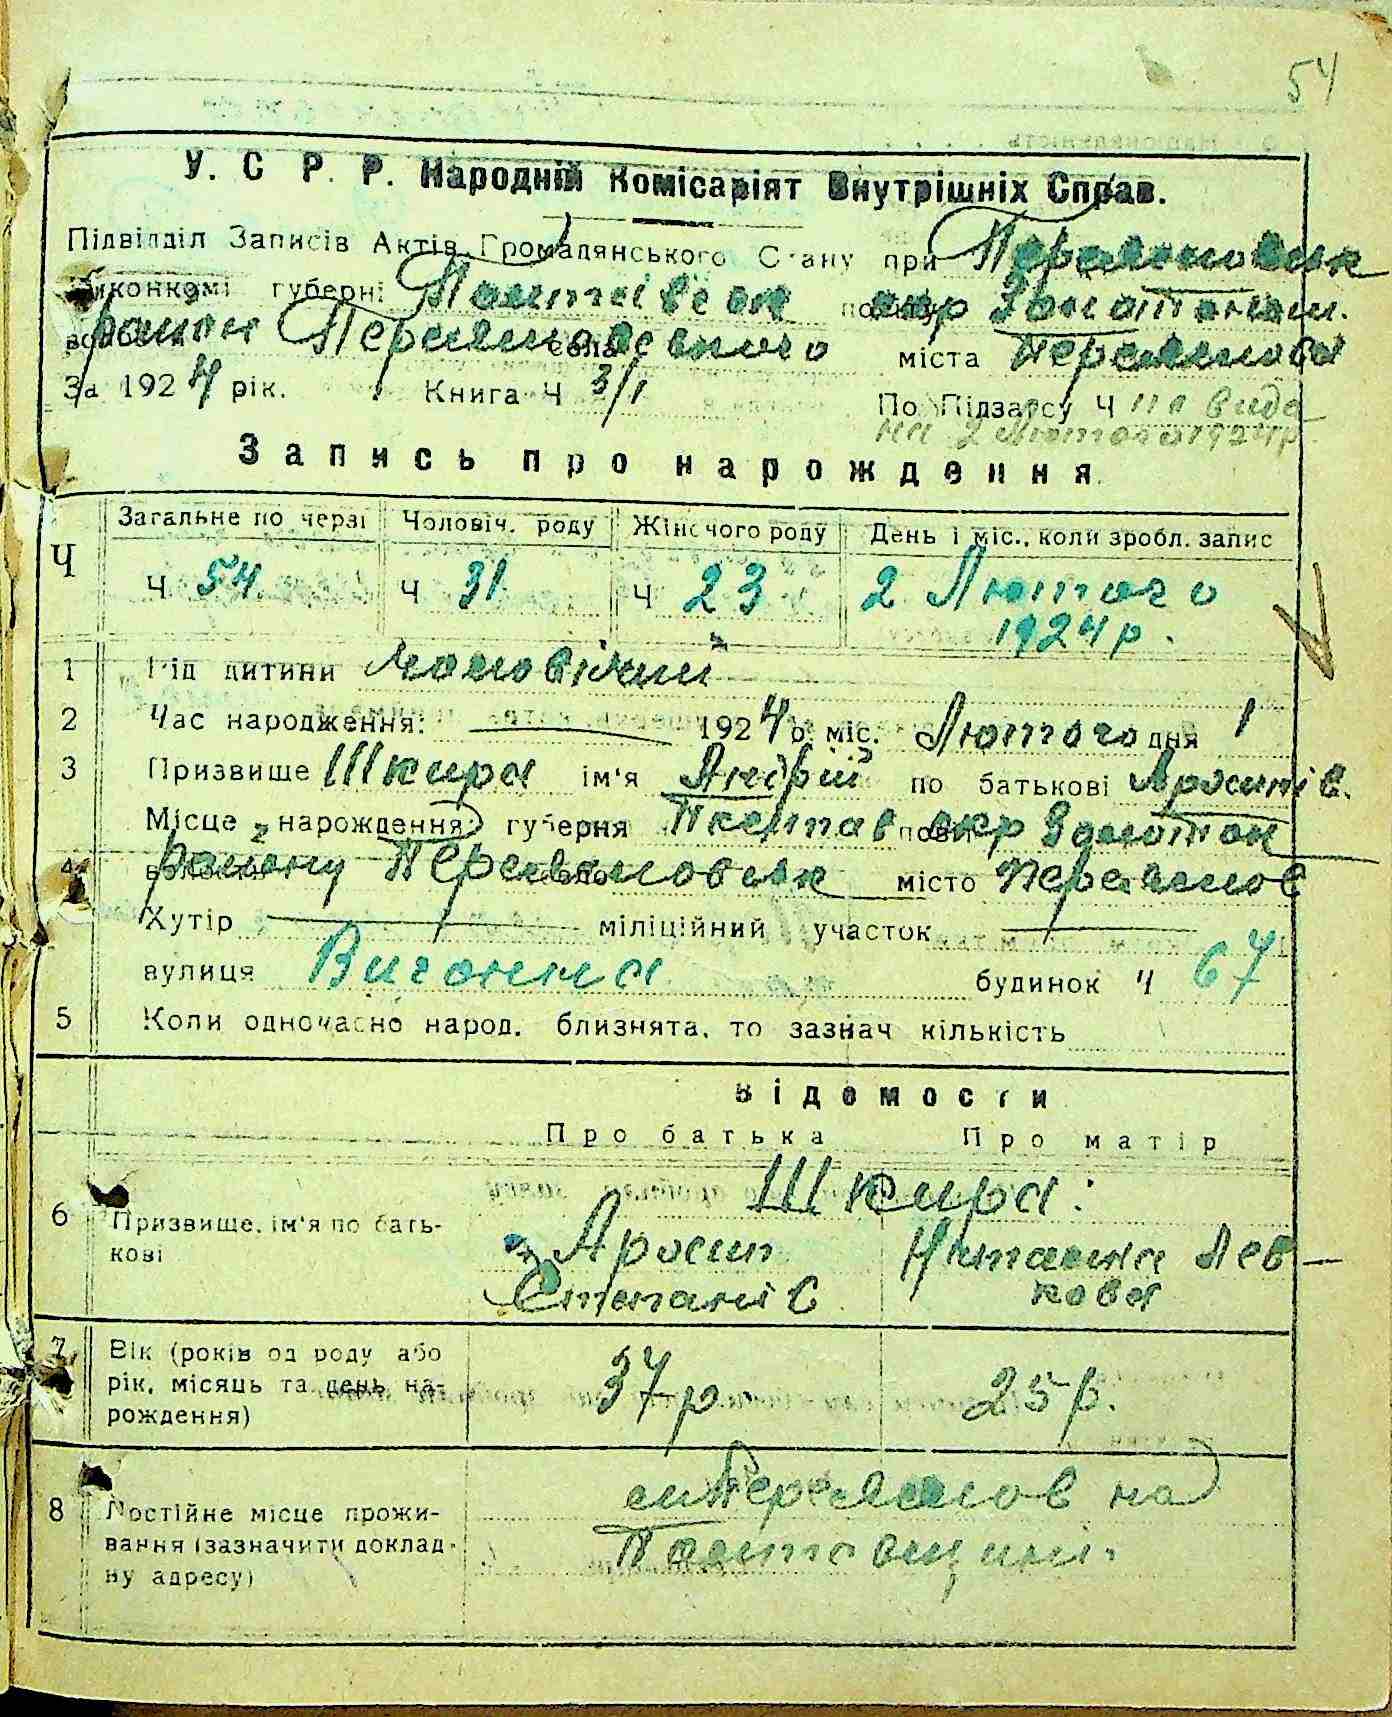 54
У. С. Р. Р. Народній Комісаріят Внутрішніх Справ.
Підвідділ Записів Актів Громадянського Стану при
Виконкомі губерні Полтавськ окр Золотоніш.
району Переяславського села міста Переяслова
За 1924 рік. Книга Ч 3/1 По Підзагсу Ч
на 2 Лютого 1924 р.
Запись про нарождення
Ч Загальне по черзі Чоловіч. роду Жіночого роду День і міс., коли зробл. запис
Ч 54. Ч 31 Ч 23 2 Лютого
1924 р.
1 Рід дитини Чоловічий
2 Час народження: 1924 р. міс. Лютого дня 1
3 Призвище Шкира ім'я Андрій по батькові
4 Місце нарождення губерня Полтав окр Золотон
району місто Переяслов
Хутір міліційний участок
вулиця Вигонна будинок ч 67
5 Коли одночасно народ. близнята, то зазнач кількість
Відемости
Про батька Про матір
Шкира:
6 Призвище, ім'я по бать-
кові
Аросип Наталка Лев-
Степанів кова
7 Вік (років од роду або
рік, місяць та день на-
рождення)
37 р. 25 р.
8 Постійне місце прожи-
вання (зазначити доклад-
ну адресу)
м Переяслов на
Полтавщині.